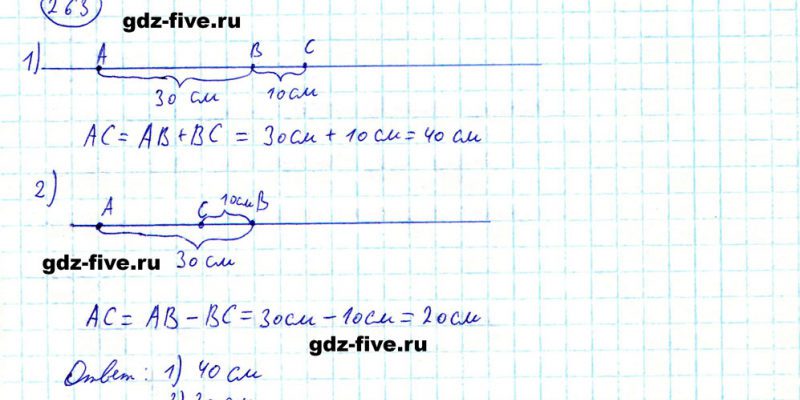 263
gdz-five.ru
1) A B C
30 см 10 см
AC = AB + BC = 30см + 10см = 40 см
2)
A C 10см B
gdz-five.ru
30 см
AC = AB − BC = 30см − 10см = 20см
gdz-five.ru
Ответ: 1) 40 см